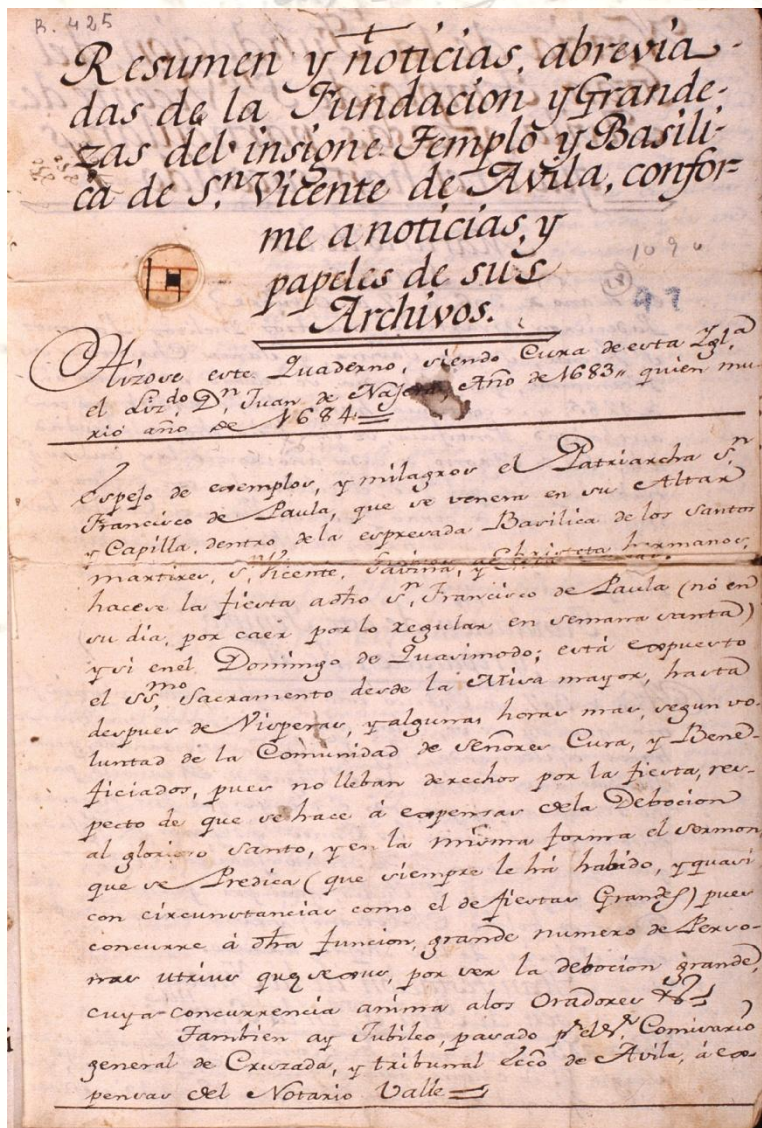 R. 425
Resumen y noticias, abrevia-
das de la Fundacion y Grande-
zas del insigne Templo y Basili-
ca de S.n Vicente de Avila, confor-
me a noticias, y
papeles de sus
Archivos.
1090
97
Hízose este Quaderno, siendo Cura de esta Igl.a
el Liz.do D.n Juan de Najera, Año de 1683,, quien mu-
rió año de 1684=
Espejo de exemplos, y milagros el Patriarcha S.n
Francisco de Paula, que se venera en su Altar
y Capilla, dentro de la espresada Basilica de los Santos
martires, S.n Vicente, Savina, y Christeta hermanos,
hacese la fiesta a dho S.n Francisco de Paula (nó en
su dia, por caer por lo regular en semana santa)
y si en el Domingo de Quasimodo; está expuesto
el SS.mo Sacramento desde la Misa mayor, hasta
despues de Visperas, y algunas horas mas, segun vo-
luntad de la Comunidad de señores Cura, y Bene-
ficiados, pues no lleban derechos por la fiesta, res-
pecto de que se hace á expensas de la Debocion
al glorioso santo, y en la misma forma el sermon,
que se Predica (que siempre le há habido, y quasi
con circunstancias como el de fiestas Grandes) pues
concurre á dha funcion, grande numero de Perso-
nas utrius que sexus, por ser la debocion grande,
cuya concurrencia anima a los Oradores &
Tambien ay Jubileo, pasado p.r el S.r Comisario
general de Cruzada, y tribunal Ecco de Avila, á ex-
pensas del Notario Valle=